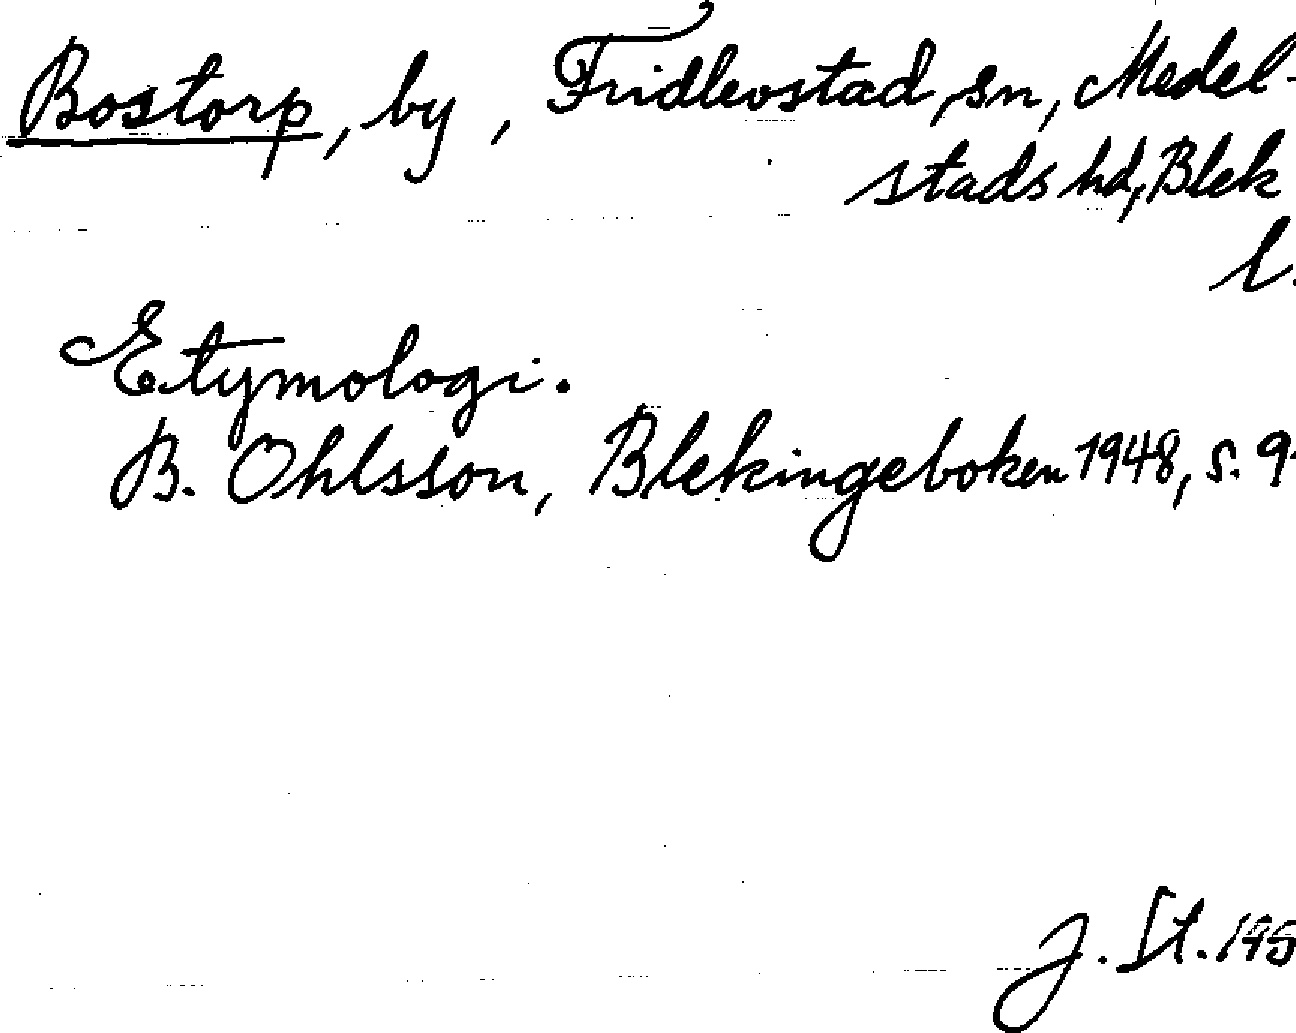 Bostorp, by, Fridlevstad, sn, Medel-
stads hd, Blek
l.
Etymologi.
B. Ohlsson, Blekingeboken 1948, s. 9
J. St. 195